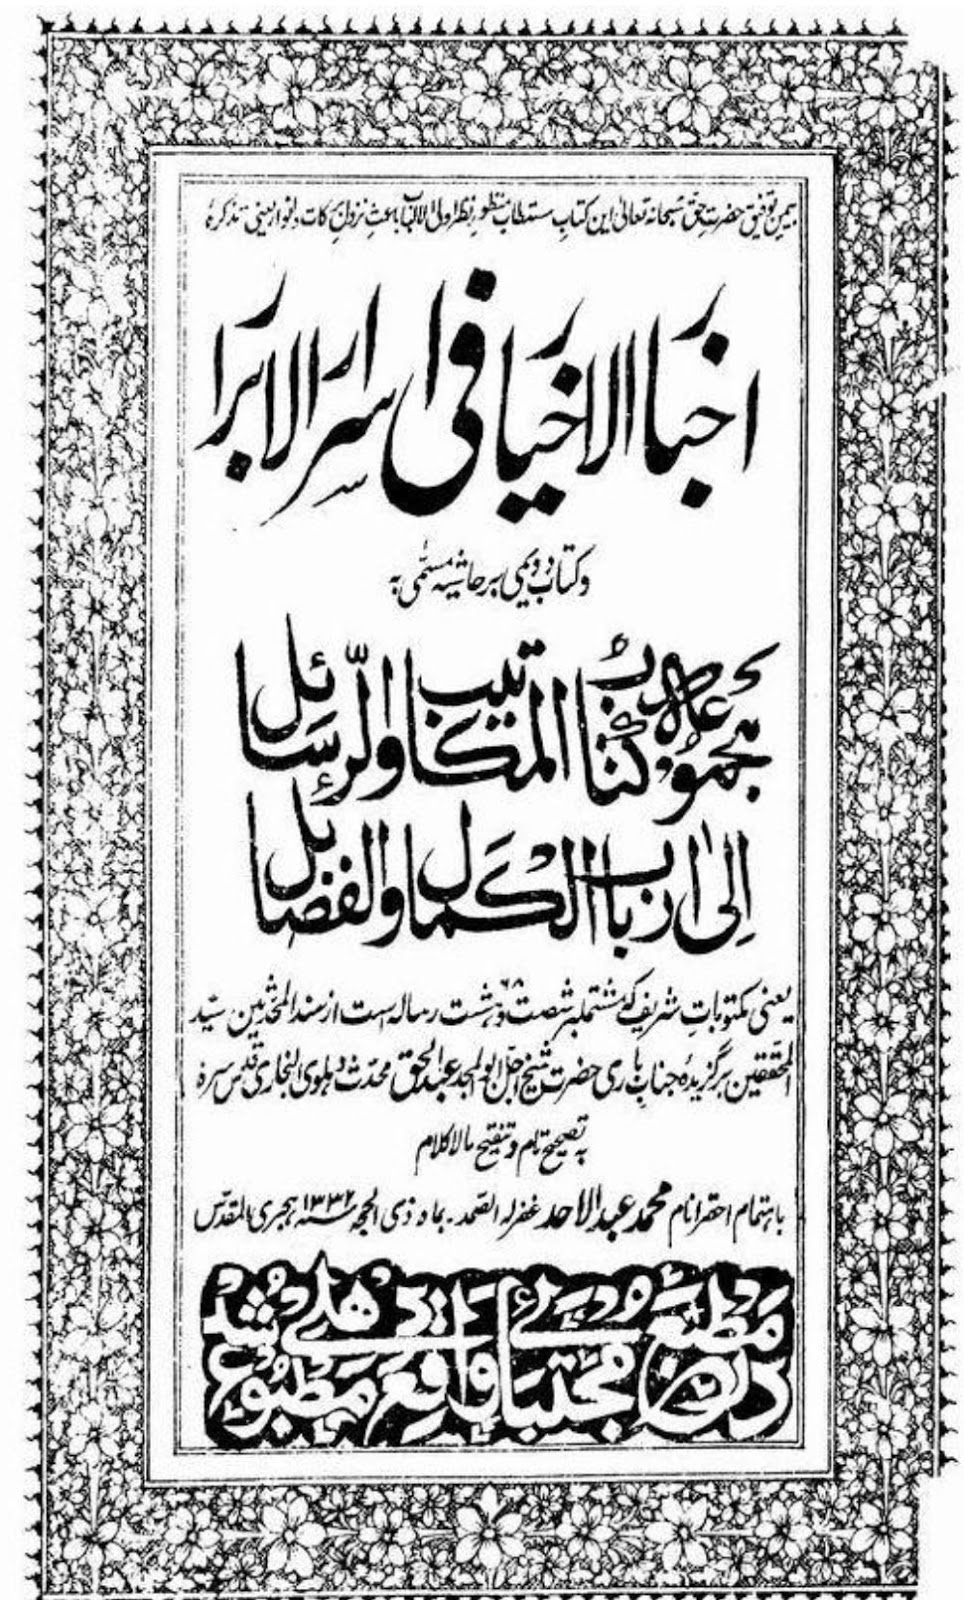 بیمن توفیق حضرت حق سبحانه تعالیٰ این کتاب مستطاب منظور نظر اولی الالباب باعث نزول برکات و انوار یعنی تذکرۂ
اخبار الاخیار فی اسرار الابرار
و کتاب دویمی بر حاشیه مسمّٰی به
مجموعه کتاب المکاتیب والرّسائل
اِلیٰ ارباب الکمال والفضائل
یعنی مکتوبات شریف که مشتملبر شصت و هشت ۶۸ رساله است از سند المحدثین سیّد
المحققین برگزیدهٔ جناب باری حضرت شیخ اجل ابو المجد عبد الحق محدّث دهلوی البخاری قدس سره
به تصحیح تام و تنقیح مالاکلام
باهتمام احقر انام محمد عبد الاحد غفر له الصمد۔ بماه ذی الحجه سنه ۱۳۳۲ هجری المقدّس
در مطبع مجتبائی واقع دهلی مطبوع شد